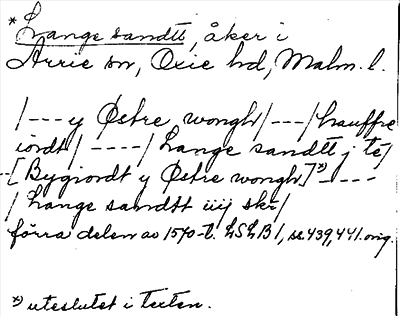 * Lange sandtt, åker i
Arrie sn, Oxie hd, Malm. l.
/--- y Østre wongh/---/hauffre
iordt/----/Lange sandtt j te/
--[Bygiordt y Østre wongh]*)----
/Lange sandtt iiij skr/
förra delen av 1570-t. LSLB 1, ss. 439, 441. orig.
*) uteslutet i texten.